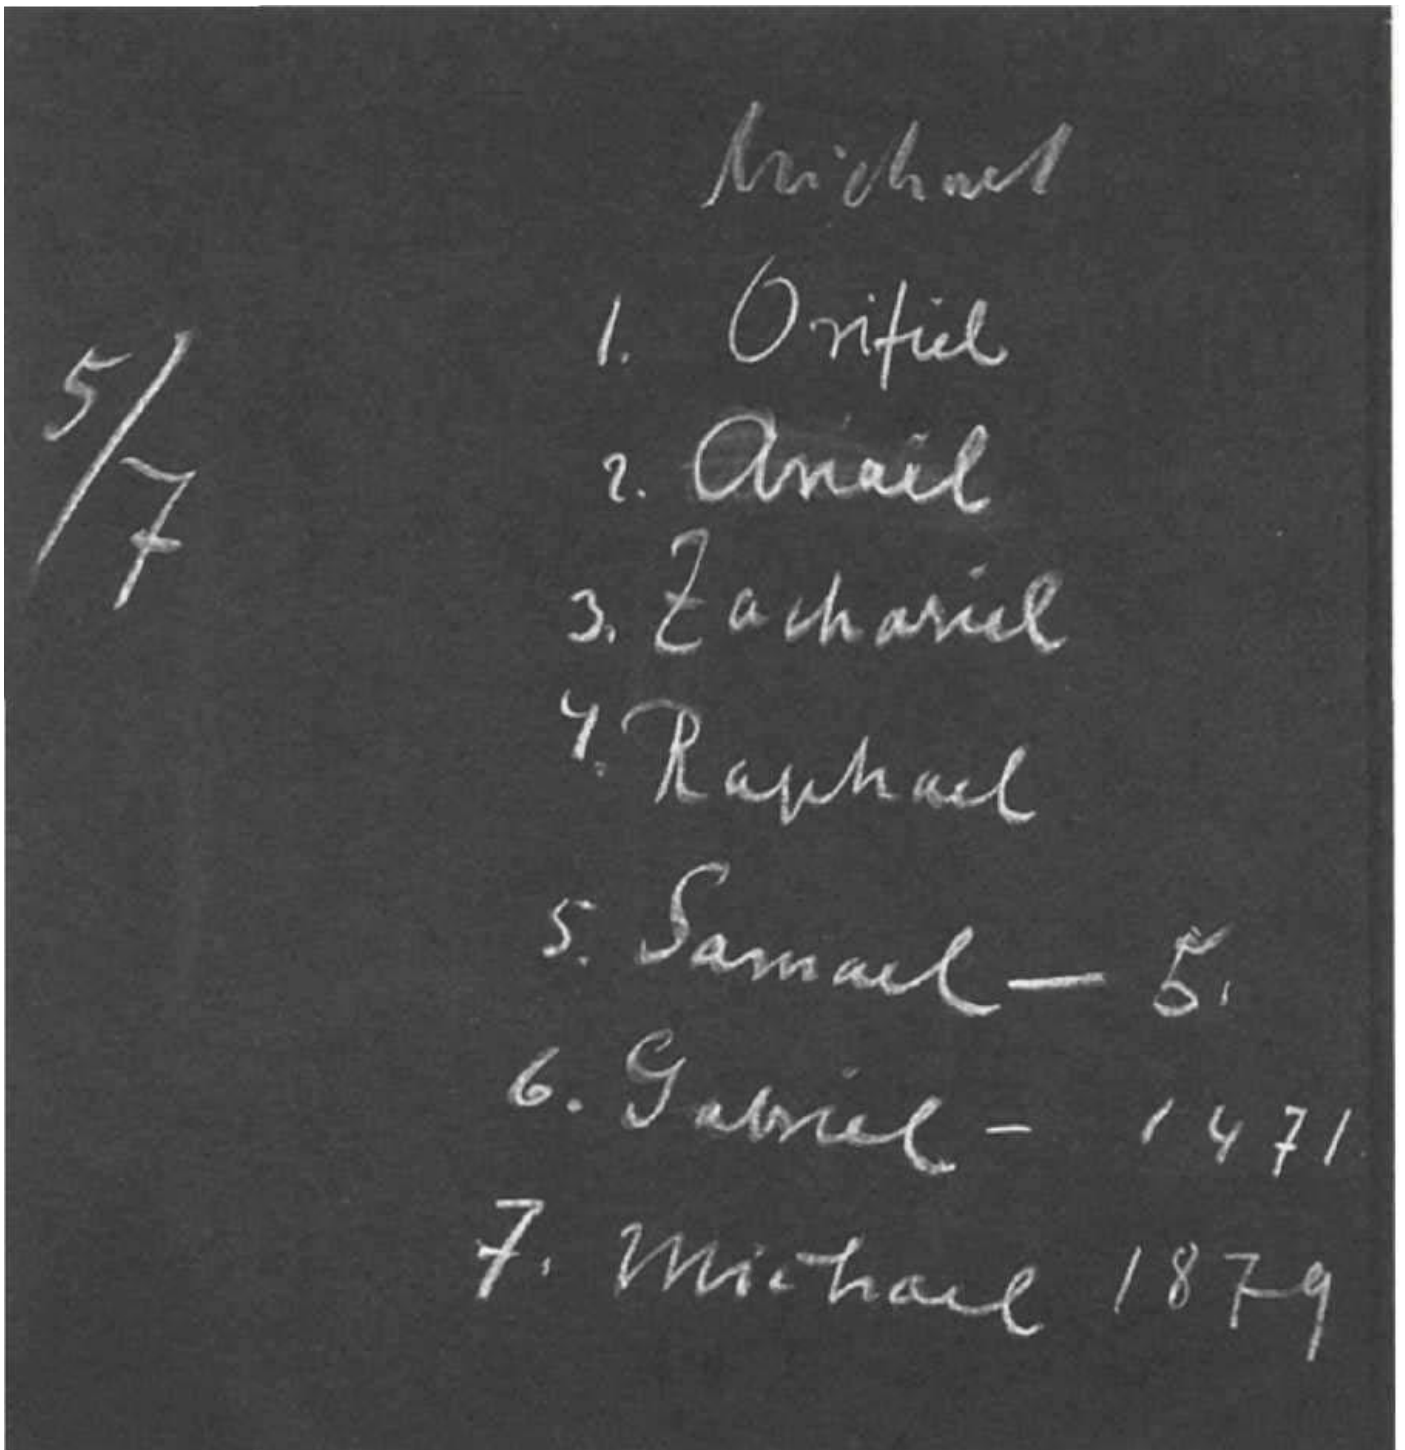 Michael
1. Orifiel
5/7
2. Anael
3. Zachariel
4. Raphael
5. Samael — 5.
6. Gabriel - 1471.
7. Michael 1879